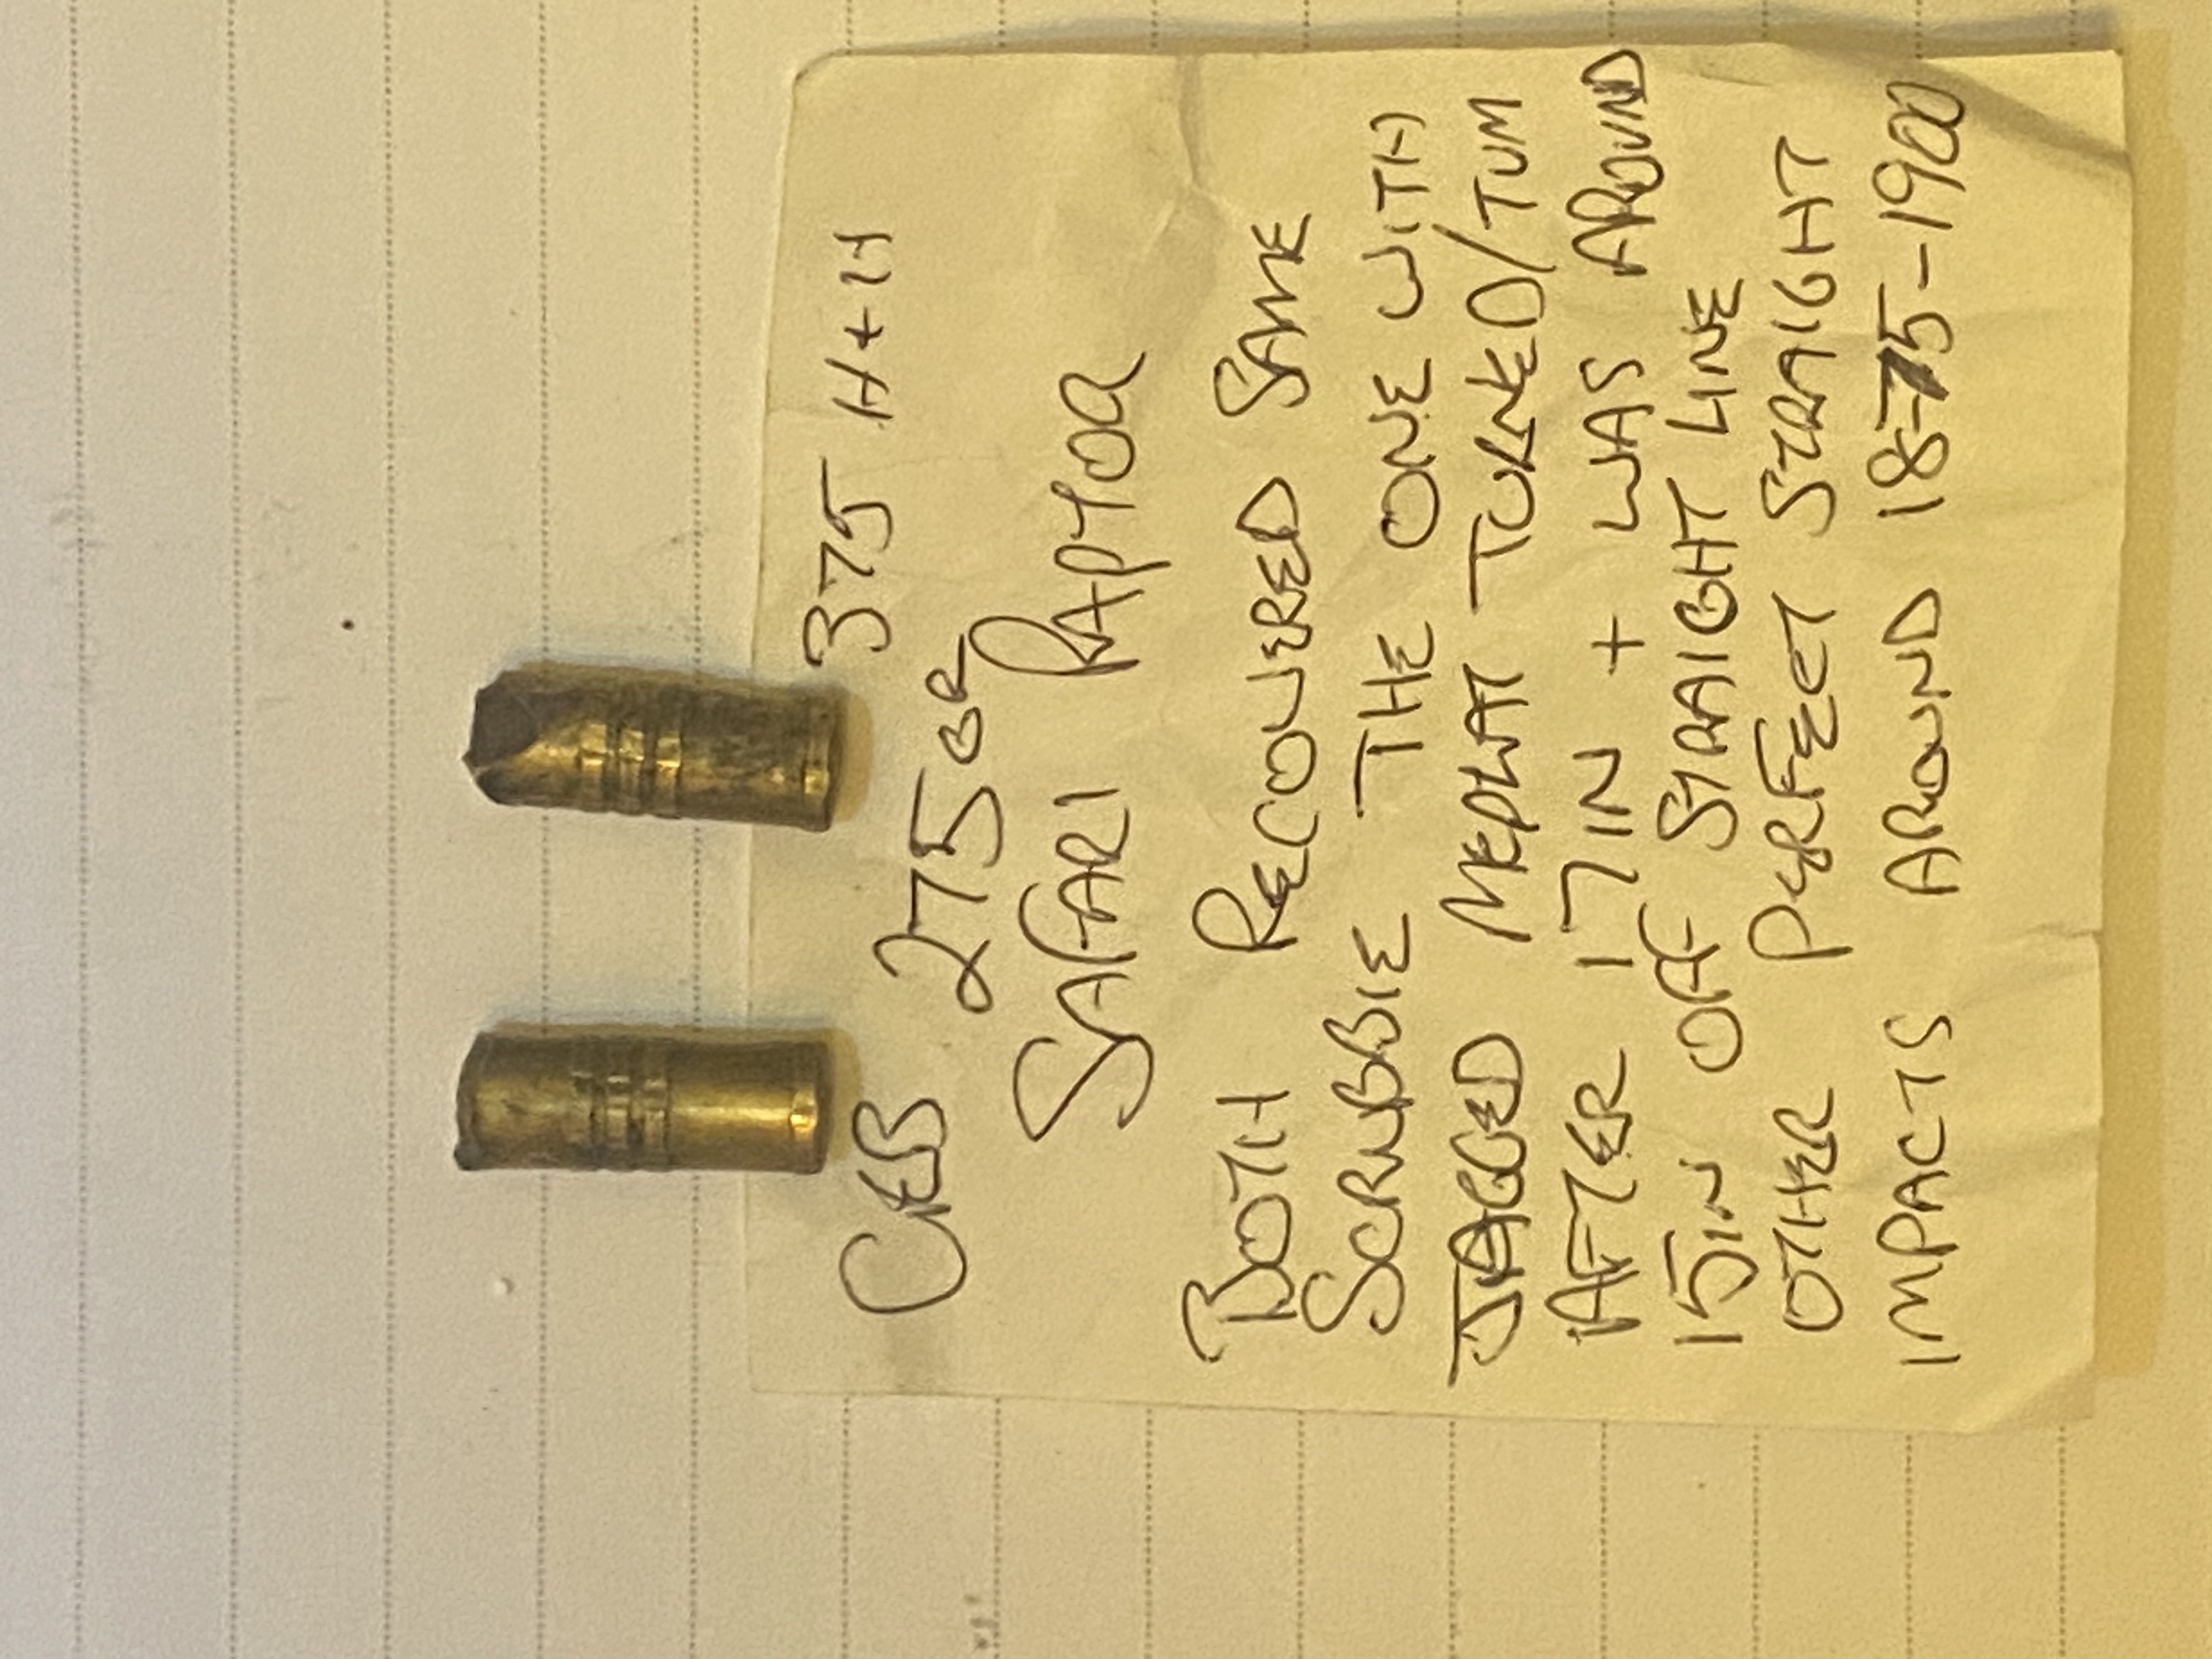 375 H+H
CEB 275GR
SAFARI RAPTOR
BOTH RECOVERED SAME
SCRUBBIE THE ONE WITH
JAGGED MEPLAT TURNED/TUM
AFTER 17IN + WAS AROUND
15IN OFF STRAIGHT LINE
OTHER PERFECT STRAIGHT
IMPACTS AROUND 1875-1900